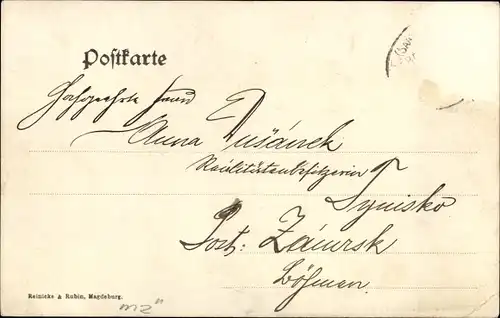 Postkarte
Hochgeehrte Frau
Anna Dušánek
Realitätenbesitzerin
Týnisko
Post: Zámrsk
Böhmen.
Reinicke & Rubin, Magdeburg.